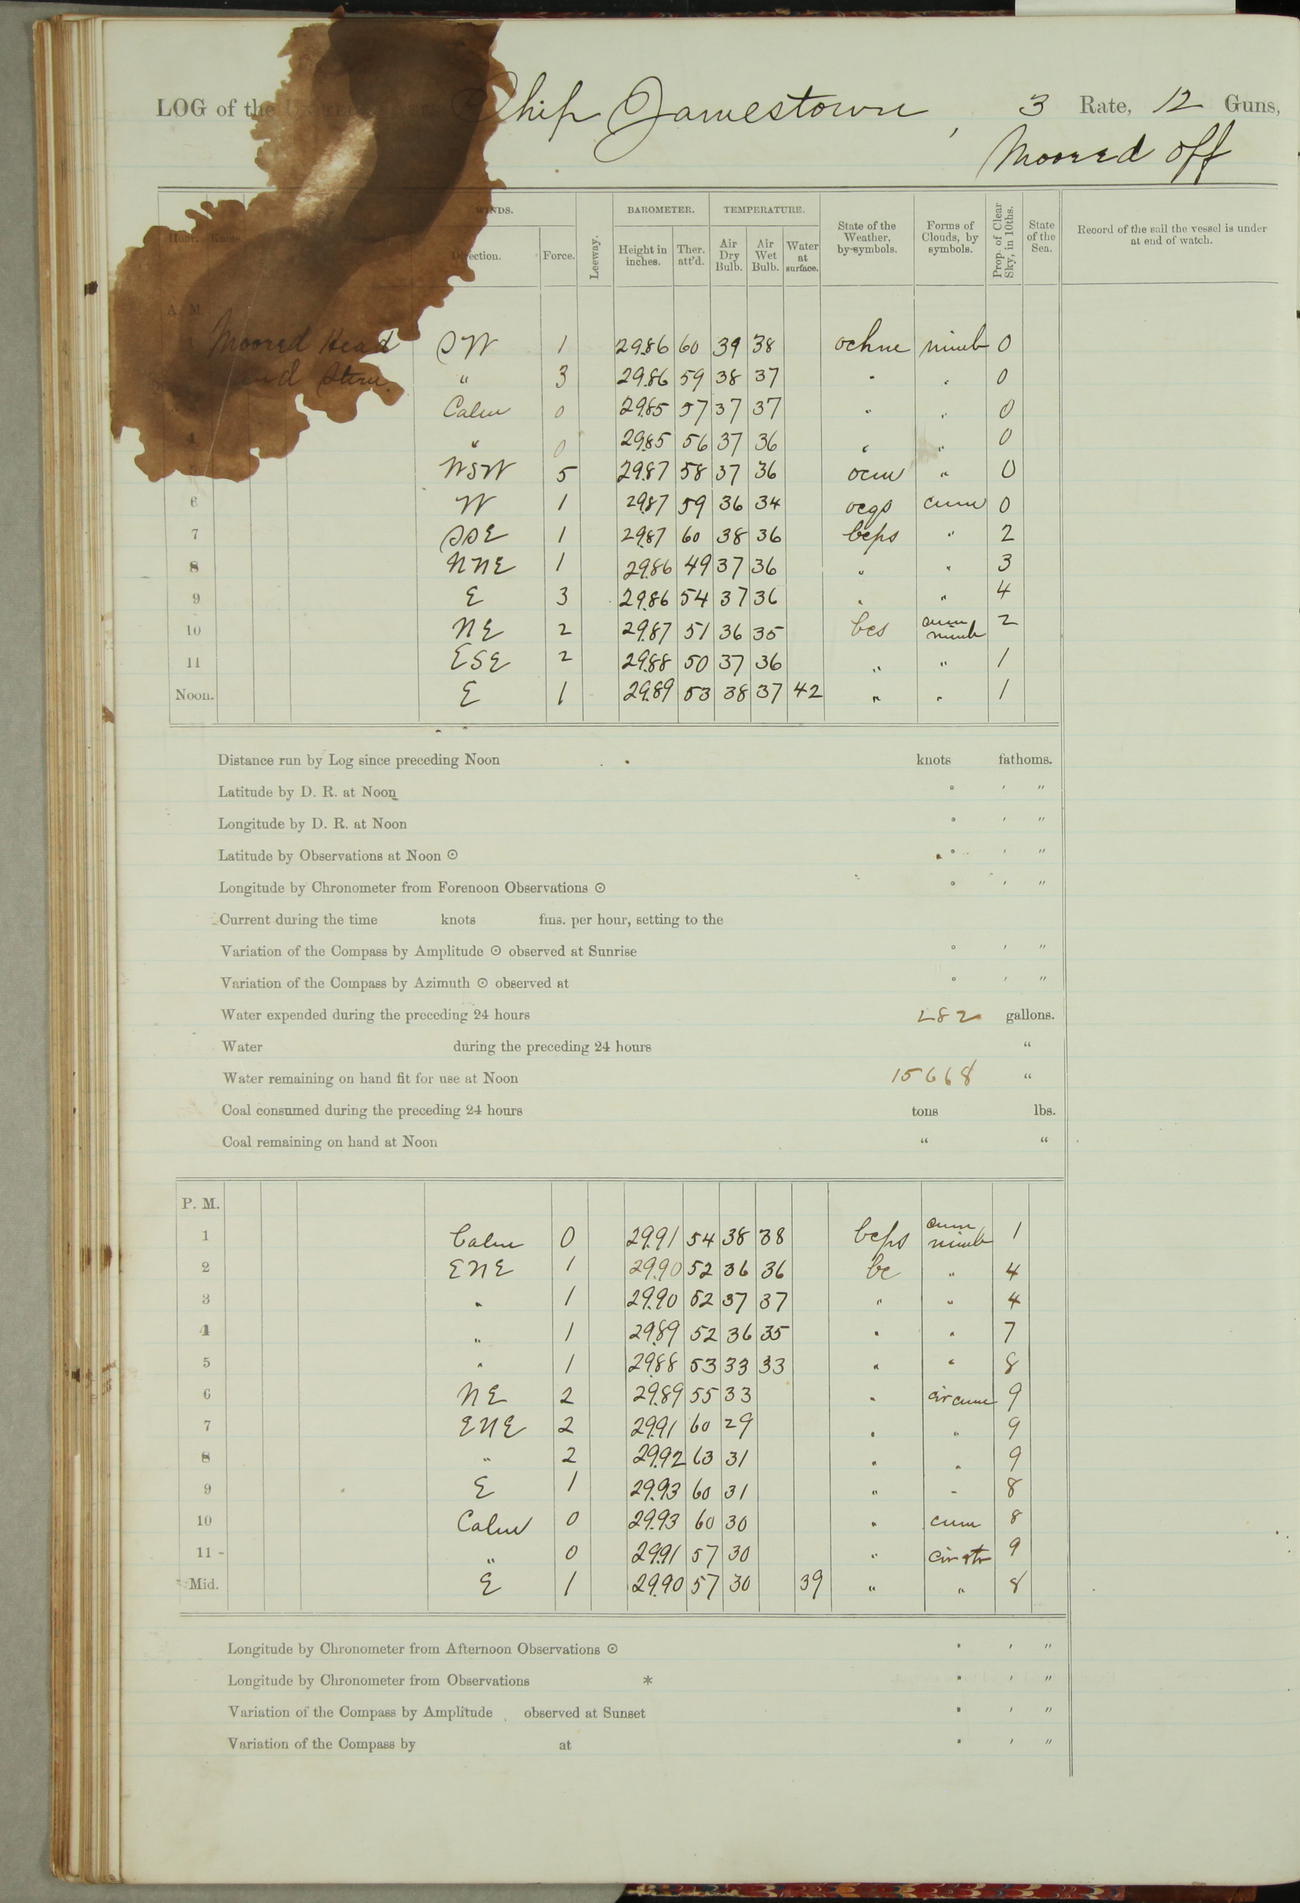 LOG of the United States Ship Jamestown, 3 Rate, 12 Guns,
Moored off
Hour. Knots. WINDS. BAROMETER. TEMPERATURE.
Direction. Force. Leeway. Height in inches. Ther. att'd. Air Dry Bulb. Air Wet Bulb. Water at surface. State of the Weather, by symbols. Forms of Clouds, by symbols. Prop. of Clear Sky, in 10ths. State of the Sea. Record of the sail the vessel is under at end of watch.
A. M.
Moored Head SW 1 29.86 60 39 38 nimb 0
and Stern " 3 29.86 59 38 37 " " 0
Calm 0 29.85 57 37 37 " " 0
4 " 0 29.85 56 37 36 " " 0
WSW 5 29.87 58 37 36 ocm " 0
6 W 1 29.87 59 36 34 ocqs cum 0
7 SSE 1 29.87 60 38 36 bcps " 2
8 NNE 1 29.86 49 37 36 " " 3
9 E 3 29.86 54 37 36 " " 4
10 NE 2 29.87 51 36 35 bcs cum nimb 2
11 ESE 2 29.88 50 37 36 " " 1
Noon. E 1 29.89 53 38 37 42 " " 1
Distance run by Log since preceding Noon knots fathoms.
Latitude by D. R. at Noon ° ′ ″
Longitude by D. R. at Noon ° ′ ″
Latitude by Observations at Noon ☉ ° ′ ″
Longitude by Chronometer from Forenoon Observations ☉ ° ′ ″
Current during the time knots fms. per hour, setting to the
Variation of the Compass by Amplitude ☉ observed at Sunrise ° ′ ″
Variation of the Compass by Azimuth ☉ observed at ° ′ ″
Water expended during the preceding 24 hours 282 gallons.
Water during the preceding 24 hours "
Water remaining on hand fit for use at Noon 15668 "
Coal consumed during the preceding 24 hours tons lbs.
Coal remaining on hand at Noon " "
P. M.
1 Calm 0 29.91 54 38 38 bcps cum nimb 1
2 ENE 1 29.90 52 36 36 bc " 4
3 " 1 29.90 52 37 37 " " 4
4 " 1 29.89 52 36 35 " " 7
5 " 1 29.88 53 33 33 " " 8
6 NE 2 29.89 55 33 " cir cum 9
7 ENE 2 29.91 60 29 " " 9
8 " 2 29.92 63 31 " " 9
9 E 1 29.93 60 31 " " 8
10 Calm 0 29.93 60 30 " cum 8
11 " 0 29.91 57 30 " cir str 9
Mid. E 1 29.90 57 30 39 " " 8
Longitude by Chronometer from Afternoon Observations ☉ ° ′ ″
Longitude by Chronometer from Observations * ° ′ ″
Variation of the Compass by Amplitude observed at Sunset ° ′ ″
Variation of the Compass by at ° ′ ″